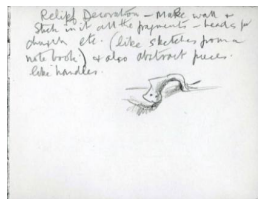 Relief Decoration – Make wall &
stick in it all the fragments – heads for
church etc. (like sketches from a
note book) & also abstract pieces.
like handles.